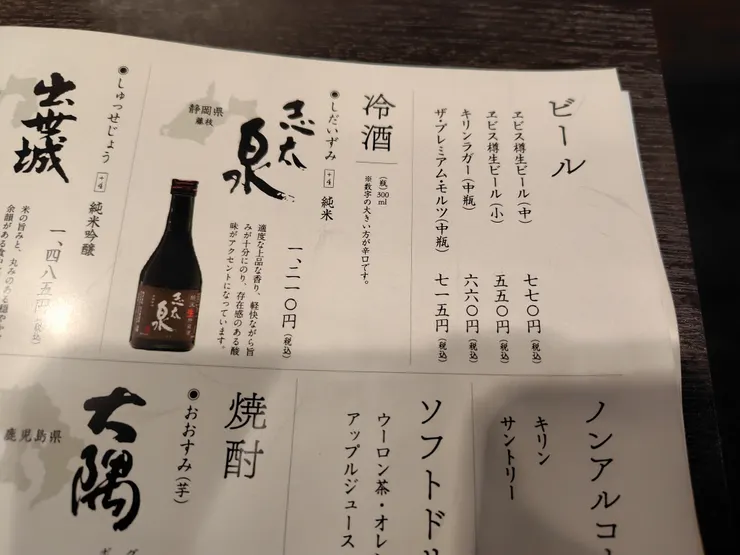 ビール
ヱビス樽生ビール(中) 七七〇円(税込)
ヱビス樽生ビール(小) 五五〇円(税込)
キリンラガー(中瓶) 六六〇円(税込)
ザ・プレミアム・モルツ(中瓶) 七一五円(税込)
冷酒
(瓶) 300ml
※数字の大きい方が辛口です。
しだいずみ +4 純米
志太泉
静岡県
藤枝
一、二一〇円(税込)
適度な上品な香り、軽快ながら旨
みが十分にのり、存在感のある酸
味がアクセントになっています。
志太泉
しゅっせじょう +4 純米吟醸
出世城
一、四八五円(税込)
米の旨みと、丸みのある
余韻がある
ノンアルコ
キリン
サントリー
ソフトド
ウーロン茶・オレン
アップルジュース
焼酎
おおすみ(芋)
大隅
鹿児島県